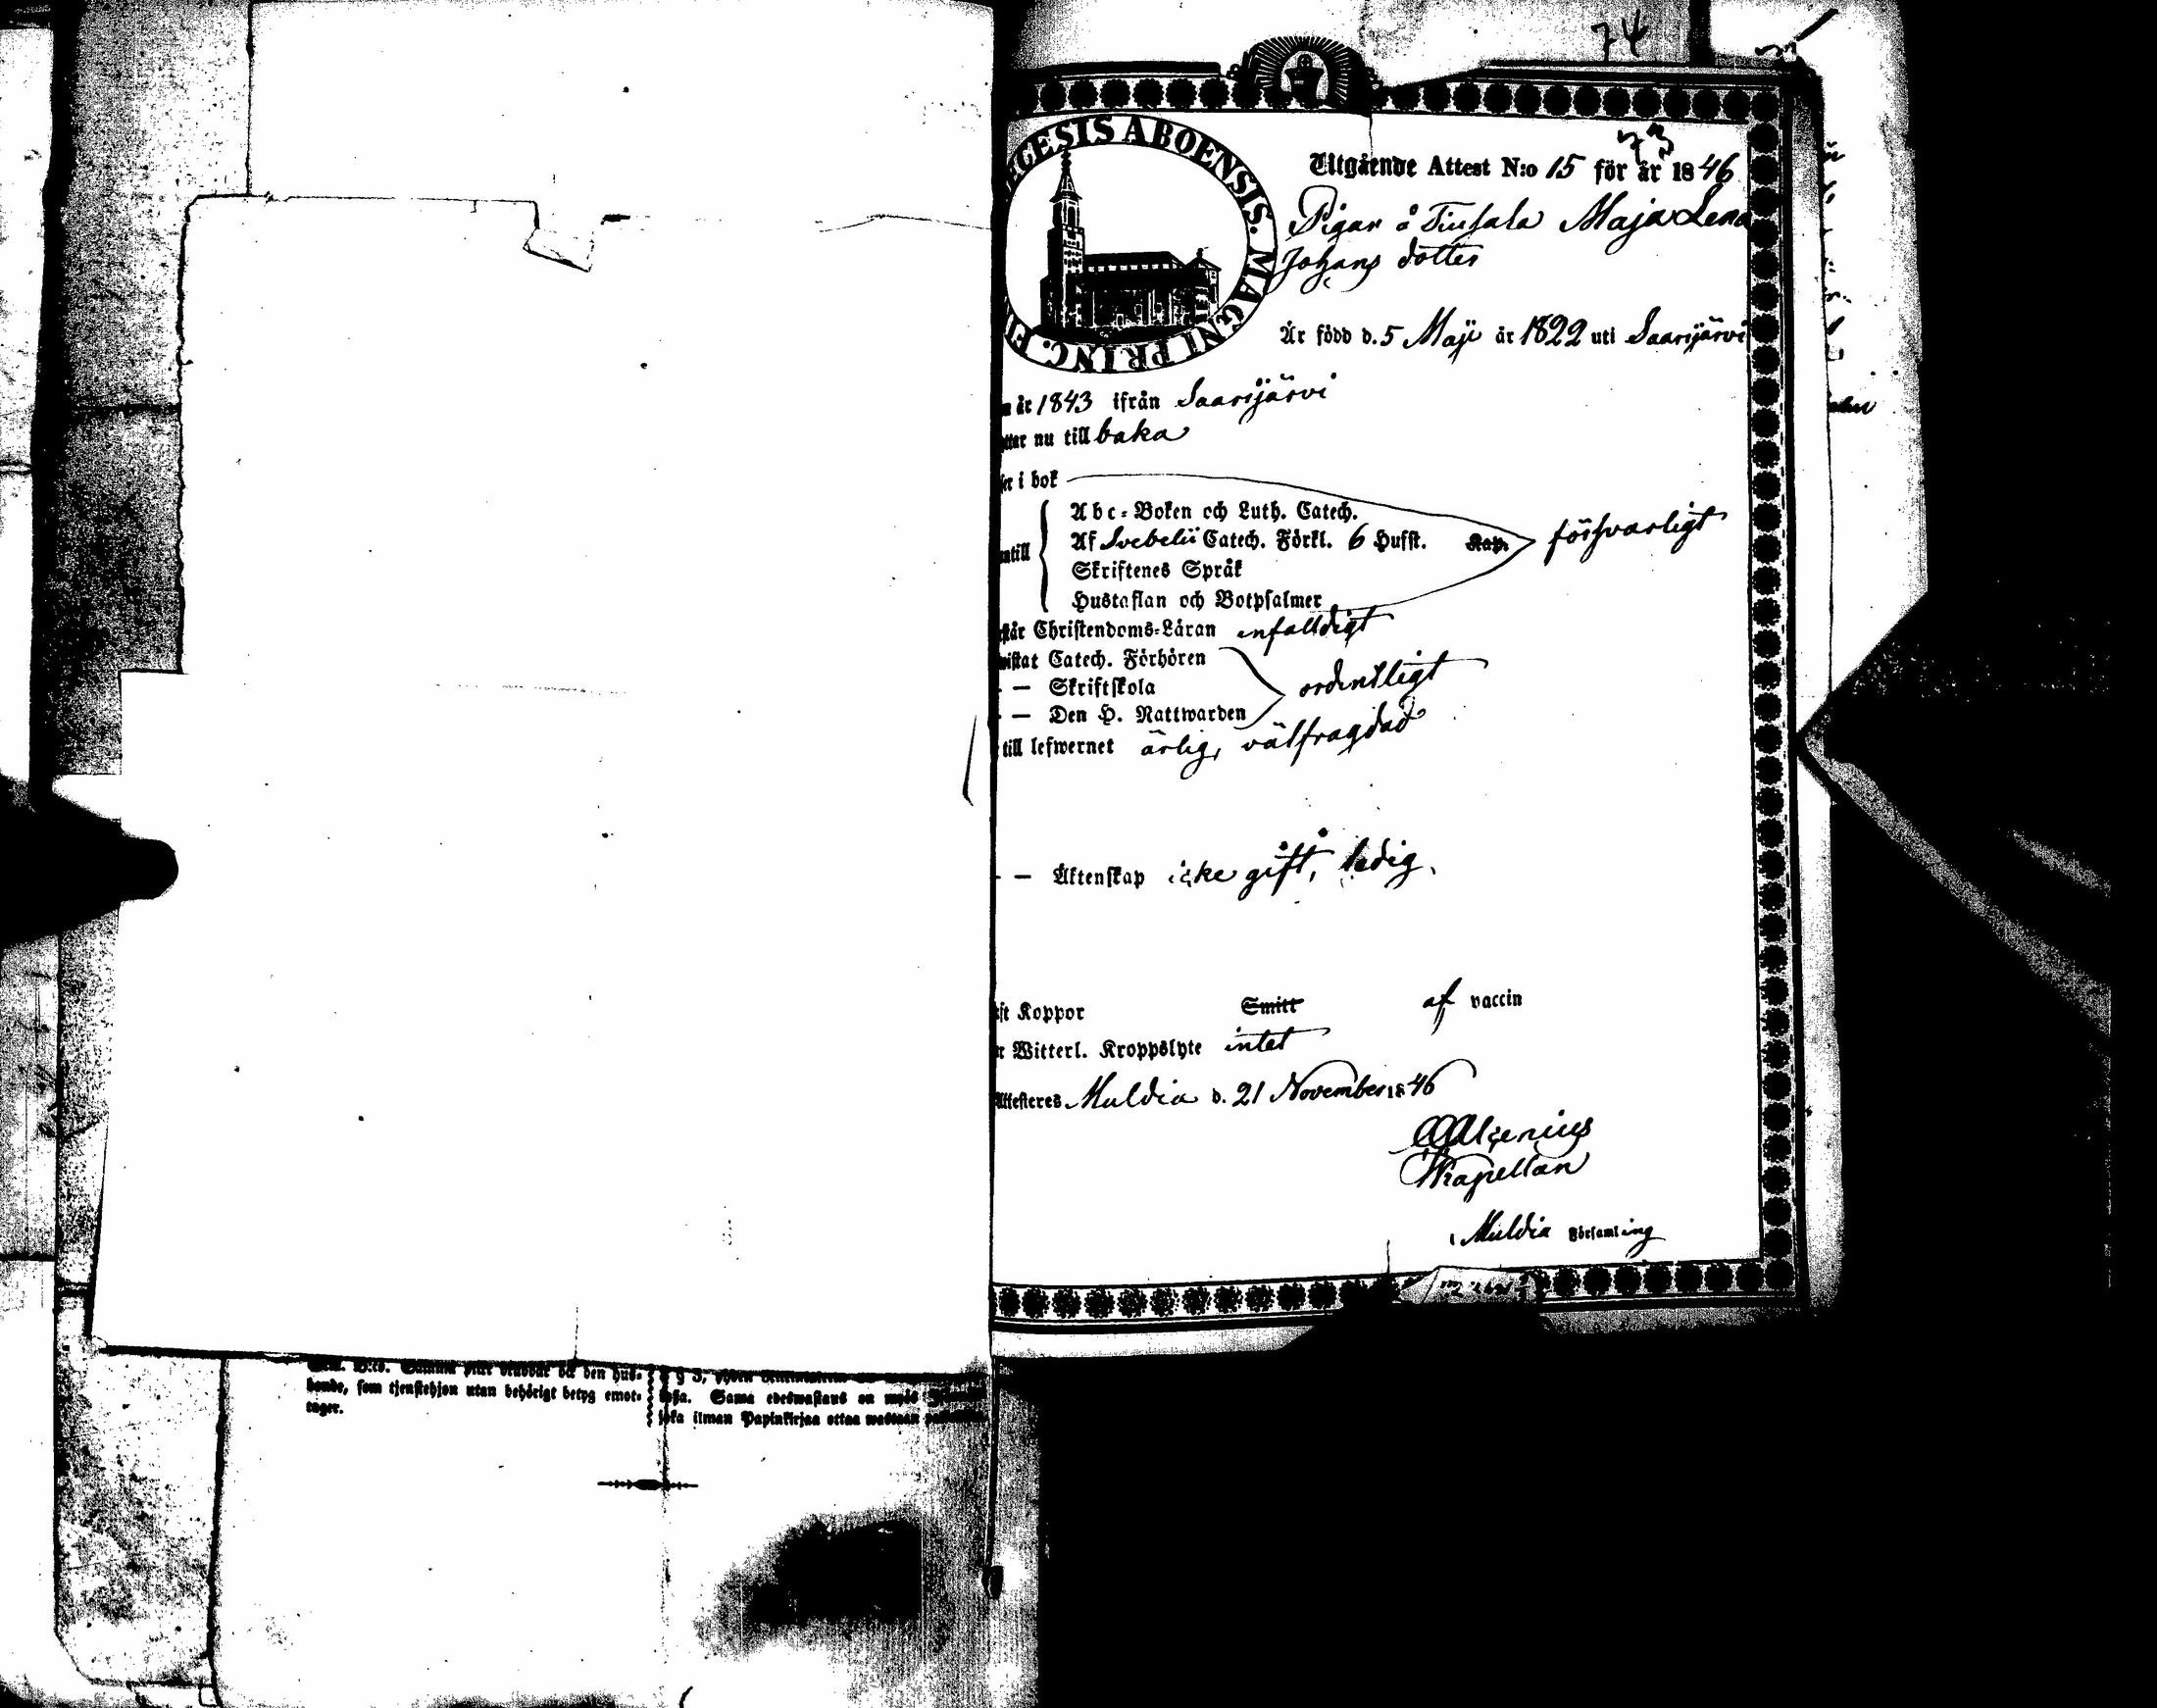 74
73
ŒCESIS ABOENSIS. MAGNI PRINC. FI
Utgående Attest N:o 15 för år 1846
Pigan å Tiusala Maja Lena
Johans dotter
Är född d. 5 Maji år 1822 uti Saarijärvi
år 1843 ifrån Saarijärvi
nu tillbaka
i bok
Abc-Boken och Luth. Catech.
Af Svebelii Catech. Förkl. 6 Hufst. Kap. försvarligt
Skriftenes Språk
Hustaflan och Botpsalmer
Christendoms-Läran enfaldigt
Catech. Förhören
— Skriftskola ordentligt
— Den H. Nattwarden
till lefwernet ärlig, välfrägdad
— Äktenskap icke gift, ledig.
Koppor Smitt af vaccin
Witterl. Kroppslyte intet
Attesteres Muldia d. 21 November 1846
Kapellan
i Muldia Församling
den hus-
bonde, som tjenstehjon utan behörigt betyg emot-
tager.
Sama edeswastaus on myös
joka ilman Papinkirjaa ottaa wastaan